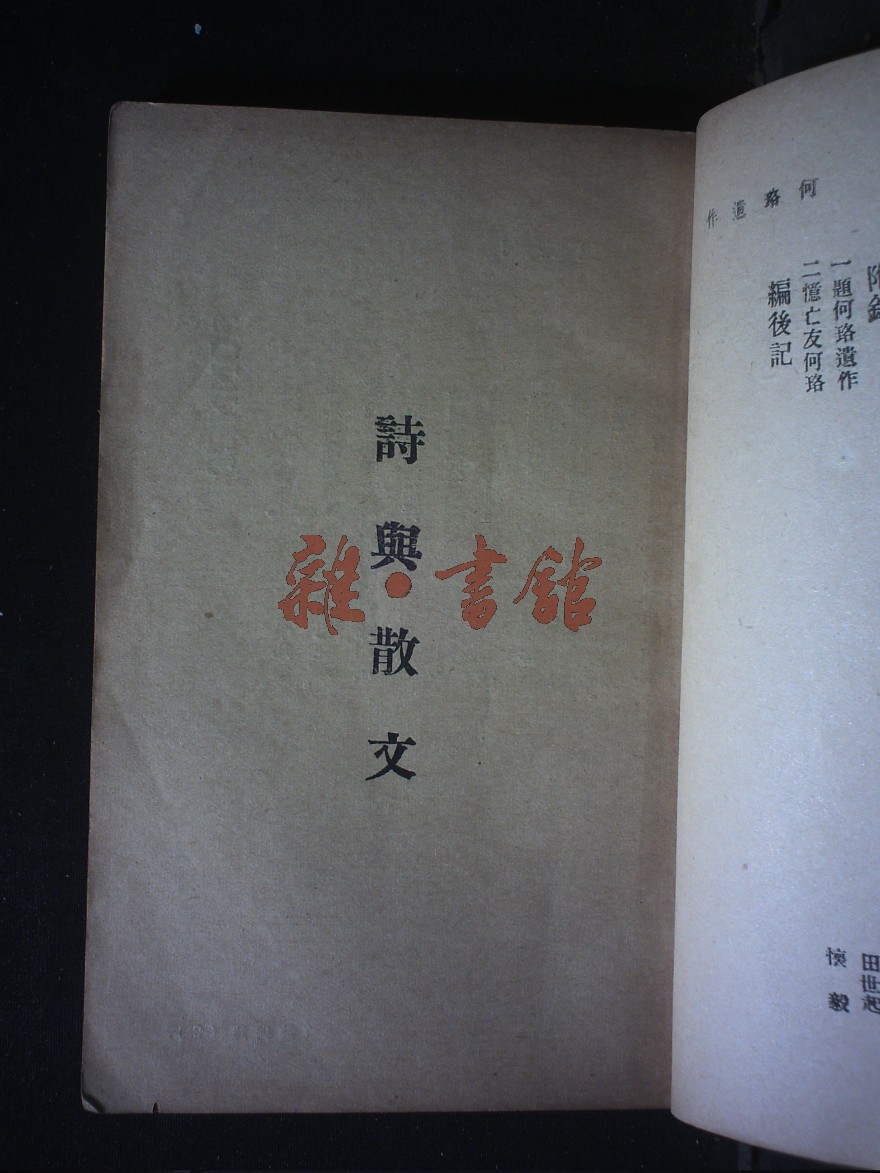 何珞遺作
附錄
一題何珞遺作 田世起
二憶亡友何珞 懷毅
編後記
詩與散文
雜·書館